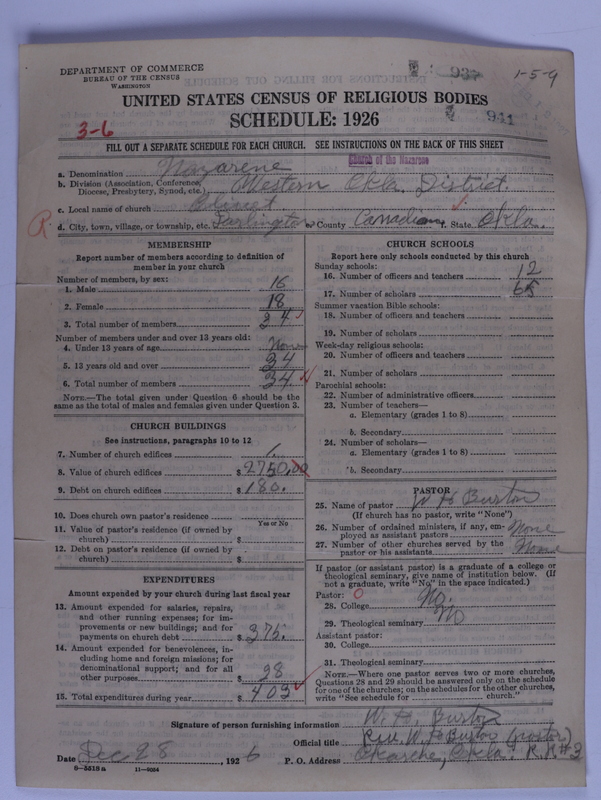 DEPARTMENT OF COMMERCE
BUREAU OF THE CENSUS
WASHINGTON
937
1-5-9
UNITED STATES CENSUS OF RELIGIOUS BODIES
SCHEDULE: 1926
941
3-6
FILL OUT A SEPARATE SCHEDULE FOR EACH CHURCH. SEE INSTRUCTIONS ON THE BACK OF THIS SHEET
Church of the Nazarene
a. Denomination Nazarene
b. Division (Association, Conference, Western Okla. District.
Diocese, Presbytery, Synod, etc.)
c. Local name of church
R d. City, town, village, or township, etc. Darlington e. County Canadian f. State Okla.
MEMBERSHIP
Report number of members according to definition of
member in your church
Number of members, by sex:
1. Male 16
2. Female 18
3. Total number of members 34
Number of members under and over 13 years old:
4. Under 13 years of age None
5. 13 years old and over 34
6. Total number of members 34
NOTE.—The total given under Question 6 should be
same as the total of males and females given under Question 3.
CHURCH BUILDINGS
See instructions, paragraphs 10 to 12
7. Number of church edifices 1.
8. Value of church edifices $ 2750.00
9. Debt on church edifices $ 180.
10. Does church own pastor's residence
Yes or No
11. Value of pastor's residence (if owned by
church) $
12. Debt on pastor's residence (if owned by
church) $
EXPENDITURES
Amount expended by your church during last fiscal year
13. Amount expended for salaries, repairs,
and other running expenses; for im-
provements or new buildings; and for
payments on church debt $ 375.
14. Amount expended for benevolences, in-
cluding home and foreign missions; for
denominational support; and for all
other purposes $ 28
15. Total expenditures during year $ 403
CHURCH SCHOOLS
Report here only schools conducted by this church
Sunday schools:
16. Number of officers and teachers 12
17. Number of scholars 65
Summer vacation Bible schools:
18. Number of officers and teachers
19. Number of scholars
Week-day religious schools:
20. Number of officers and teachers
21. Number of scholars
Parochial schools:
22. Number of administrative officers
23. Number of teachers—
a. Elementary (grades 1 to 8)
b. Secondary
24. Number of scholars—
a. Elementary (grades 1 to 8)
b. Secondary
PASTOR
25. Name of pastor W H Burton
(If church has no pastor, write "None")
26. Number of ordained ministers, if any, em-
ployed as assistant pastors None
27. Number of other churches served by the
pastor or his assistants None
If pastor (or assistant pastor) is a graduate of a college or
theological seminary, give name of institution below. (If
not a graduate, write "No" in the space indicated.)
Pastor: O
28. College No.
29. Theological seminary No
Assistant pastor:
30. College
31. Theological seminary
NOTE.—Where one pastor serves two or more churches,
Questions 28 and 29 should be answered only on the schedule
for one of the churches; on the schedules for the other churches,
write "See schedule for church."
Signature of person furnishing information W. H. Burton
Official title Rev. W. H Burton (pastor)
Date Dec 28, 1926 P. O. Address Okarche, Okla. R.R.#3
8—5519a 11—9024